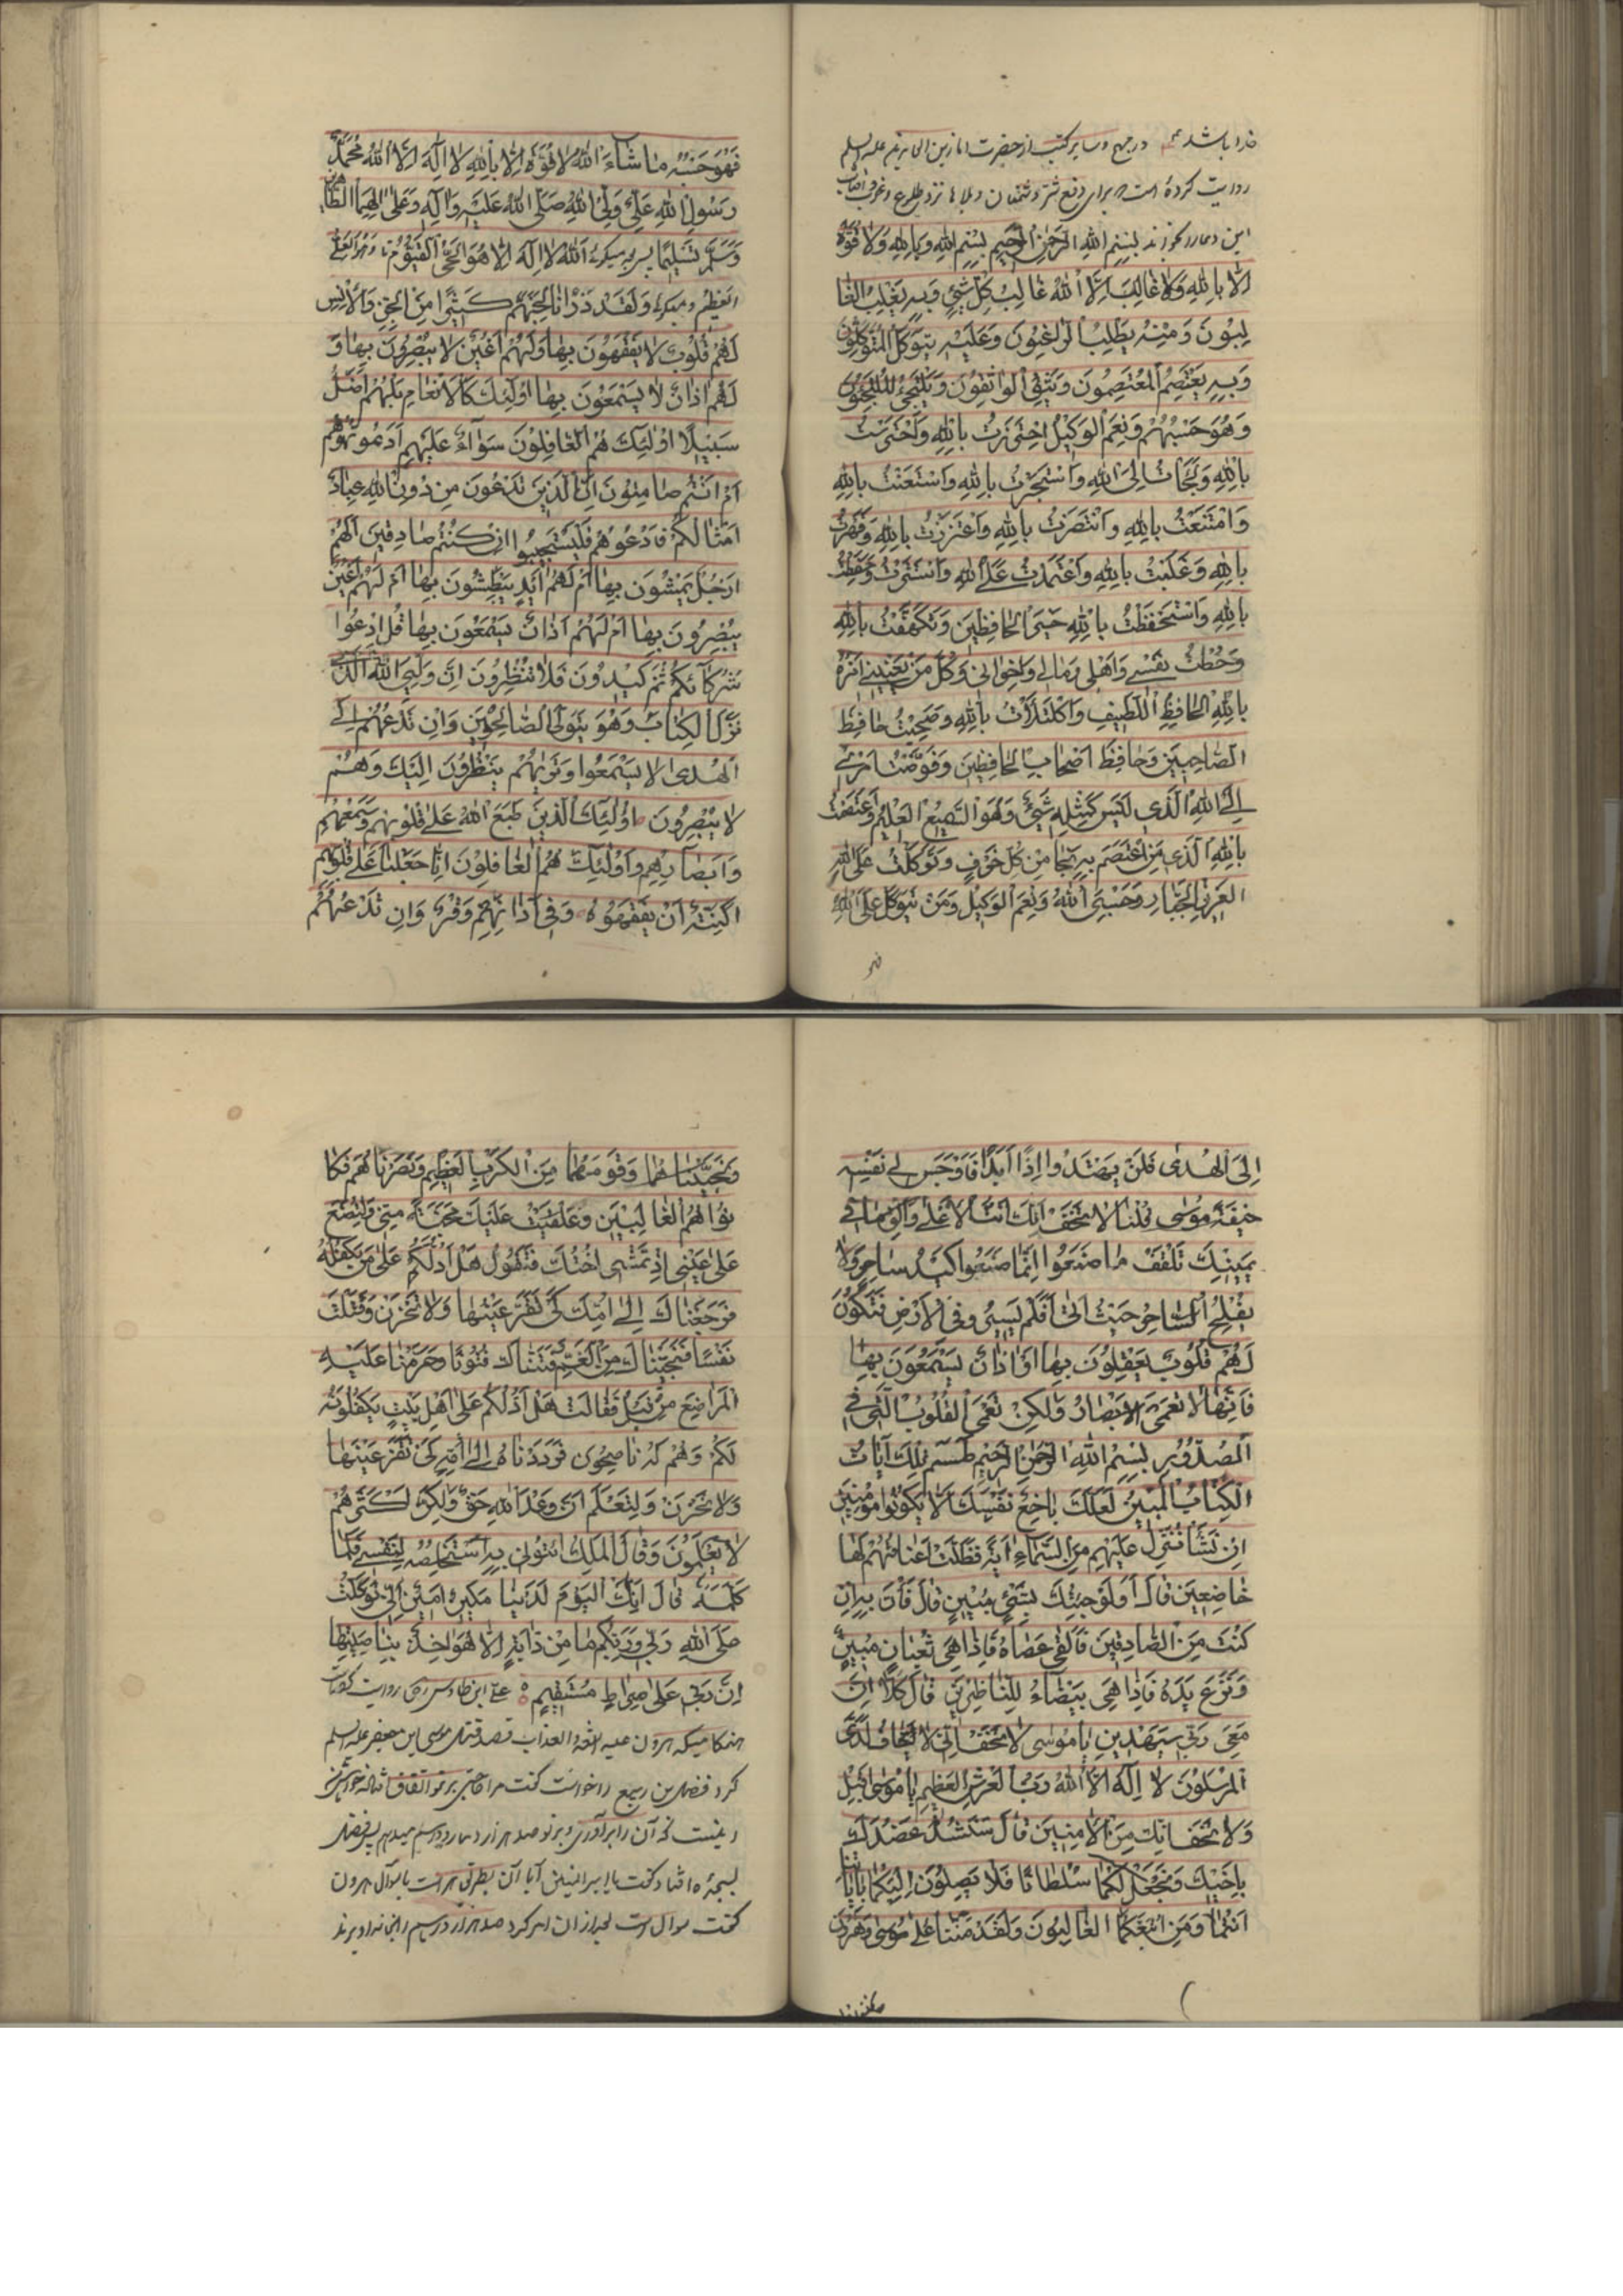 خدا باشد در مهج و سایر کتب از حضرت امام زین العابدین علیه السلم
روایت کرده است برای دفع شر دشمنان و بلاها نزد طلوع و غروب آفتاب
این دعا را بخوانند بِسْمِ اللهِ الرَّحْمٰنِ الرَّحِيمِ بِسْمِ اللهِ وَبِاللهِ وَلا قُوَّةَ
اِلّا بِاللهِ وَلا غالِبَ اِلَّا اللهُ غالِبُ كُلِّ شَيْءٍ وَبِهِ يَغْلِبُ الغا
لِبُونَ وَمِنْهُ يَطْلِبُ الرّاغِبُونَ وَعَلَيْهِ يَتَوَكَّلُ الْمُتَوَكِّلُونَ
وَبِهِ يَعْتَصِمُ الْمُعْتَصِمُونَ وَيَثِقُ الْواثِقُونَ وَيَلْتَجِئُ الْمُلْتَجِئُونَ
وَهُوَ حَسْبُهُمْ وَنِعْمَ الْوَكِيلُ اِحْتَرَزْتُ بِاللهِ وَاحْتَرَسْتُ
بِاللهِ وَلَجَأْتُ اِلَى اللهِ وَاسْتَجَرْتُ بِاللهِ وَاسْتَعَنْتُ بِاللهِ
وَامْتَنَعْتُ بِاللهِ وَانْتَصَرْتُ بِاللهِ وَاعْتَزَزْتُ بِاللهِ وَقَهَرْتُ
بِاللهِ وَغَلَبْتُ بِاللهِ وَاعْتَمَدْتُ عَلَى اللهِ وَاسْتَتَرْتُ وَحَفِظْتُ
بِاللهِ وَاسْتَحْفَظْتُ بِاللهِ خَيْرِ الْحافِظِينَ وَتَكَهَّفْتُ بِاللهِ
وَحُطْتُ نَفْسِي وَاَهْلِي وَمالِي وَاِخْوانِي وَكُلَّ مَنْ يَعْنِينِي اَمْرُهُ
بِاللهِ الْحافِظِ اللَّطِيفِ وَاكْتَلَأْتُ بِاللهِ وَصَحِبْتُ حافِظَ
الصّاحِبِينَ وَحافِظَ اَصْحابِ الْحافِظِينَ وَفَوَّضْتُ اَمْرِي
اِلَى اللهِ الَّذِي لَيْسَ كَمِثْلِهِ شَيْءٌ وَهُوَ السَّمِيعُ الْعَلِيمُ وَاعْتَصَمْتُ
بِاللهِ الَّذِي مَنِ اعْتَصَمَ بِهِ نَجا مِنْ كُلِّ خَوْفٍ وَتَوَكَّلْتُ عَلَى اللهِ
الْعَزِيزِ الْجَبّارِ وَحَسْبِيَ اللهُ وَنِعْمَ الْوَكِيلُ وَمَنْ يَتَوَكَّلْ عَلَى اللهِ
فهو
فَهُوَ حَسْبُهُ ما شاءَ اللهُ لا قُوَّةَ اِلّا بِاللهِ لا اِلٰهَ اِلَّا اللهُ مُحَمَّدٌ
رَسُولُ اللهِ عَلِيٌّ وَلِيُّ اللهِ صَلَّى اللهُ عَلَيْهِ وَآلِهِ وَعَلى آلِهِمَا الطّاهِرِينَ
وَسَلَّمَ تَسْلِيمًا پس میگوئی اَللهُ لا اِلٰهَ اِلّا هُوَ الْحَيُّ الْقَيُّومُ تا وهو العلی
العظیم و میگوئی وَلَقَدْ ذَرَأْنا لِجَهَنَّمَ كَثِيرًا مِنَ الْجِنِّ وَالْاِنْسِ
لَهُمْ قُلُوبٌ لا يَفْقَهُونَ بِها وَلَهُمْ اَعْيُنٌ لا يُبْصِرُونَ بِها وَ
لَهُمْ اٰذانٌ لا يَسْمَعُونَ بِها اُولٰئِكَ كَالْاَنْعامِ بَلْ هُمْ اَضَلُّ
سَبِيلًا اُولٰئِكَ هُمُ الْغافِلُونَ سَواءٌ عَلَيْهِمْ اَدَعَوْتُمُوهُمْ
اَمْ اَنْتُمْ صامِتُونَ اِنَّ الَّذِينَ تَدْعُونَ مِنْ دُونِ اللهِ عِبادٌ
اَمْثالُكُمْ فَادْعُوهُمْ فَلْيَسْتَجِيبُوا اِنْ كُنْتُمْ صادِقِينَ اَلَهُمْ
اَرْجُلٌ يَمْشُونَ بِها اَمْ لَهُمْ اَيْدٍ يَبْطِشُونَ بِها اَمْ لَهُمْ اَعْيُنٌ
يُبْصِرُونَ بِها اَمْ لَهُمْ اٰذانٌ يَسْمَعُونَ بِها قُلِ ادْعُوا
شُرَكائَكُمْ ثُمَّ كِيدُونِ فَلا تُنْظِرُونِ اِنَّ وَلِيِّيَ اللهُ الَّذِي
نَزَّلَ الْكِتابَ وَهُوَ يَتَوَلَّى الصّالِحِينَ وَاِنْ تَدْعُهُمْ اِلَى
الْهُدى لا يَسْمَعُوا وَتَرٰيهُمْ يَنْظُرُونَ اِلَيْكَ وَهُمْ
لا يُبْصِرُونَ اُولٰئِكَ الَّذِينَ طَبَعَ اللهُ عَلى قُلُوبِهِمْ وَسَمْعِهِمْ
وَاَبْصارِهِمْ وَاُولٰئِكَ هُمُ الْغافِلُونَ اِنّا جَعَلْنا عَلى قُلُوبِهِمْ
اَكِنَّةً اَنْ يَفْقَهُوهُ وَفِي اٰذانِهِمْ وَقْرًا وَاِنْ تَدْعُهُمْ
اِلَى الْهُدى فَلَنْ يَهْتَدُوا اِذًا اَبَدًا فَاَوْجَسَ فِي نَفْسِهِ
خِيفَةً مُوسى قُلْنا لا تَخَفْ اِنَّكَ اَنْتَ الْاَعْلى وَاَلْقِ ما فِي
يَمِينِكَ تَلْقَفْ ما صَنَعُوا اِنَّما صَنَعُوا كَيْدُ ساحِرٍ وَلا
يُفْلِحُ السّاحِرُ حَيْثُ اَتى اَفَلَمْ يَسِيرُوا فِي الْاَرْضِ فَتَكُونَ
لَهُمْ قُلُوبٌ يَعْقِلُونَ بِها اَوْ اٰذانٌ يَسْمَعُونَ بِها
فَاِنَّها لا تَعْمَى الْاَبْصارُ وَلٰكِنْ تَعْمَى الْقُلُوبُ الَّتِي فِي
الصُّدُورِ بِسْمِ اللهِ الرَّحْمٰنِ الرَّحِيمِ طسم تِلْكَ آياتُ
الْكِتابِ الْمُبِينِ لَعَلَّكَ باخِعٌ نَفْسَكَ اَلّا يَكُونُوا مُؤْمِنِينَ
اِنْ نَشَأْ نُنَزِّلْ عَلَيْهِمْ مِنَ السَّماءِ اٰيَةً فَظَلَّتْ اَعْناقُهُمْ لَها
خاضِعِينَ قالَ اَوَلَوْ جِئْتُكَ بِشَيْءٍ مُبِينٍ قالَ فَأْتِ بِهِ اِنْ
كُنْتَ مِنَ الصّادِقِينَ فَاَلْقى عَصاهُ فَاِذا هِيَ ثُعْبانٌ مُبِينٌ
وَنَزَعَ يَدَهُ فَاِذا هِيَ بَيْضاءُ لِلنّاظِرِينَ قالَ كَلّا اِنَّ
مَعِيَ رَبِّي سَيَهْدِينِ يا مُوسى لا تَخَفْ اِنِّي لا يَخافُ لَدَيَّ
الْمُرْسَلُونَ لا اِلٰهَ اِلَّا اللهُ رَبُّ الْعَرْشِ الْعَظِيمِ يا مُوسى اَقْبِلْ
وَلا تَخَفْ اِنَّكَ مِنَ الْاٰمِنِينَ قالَ سَنَشُدُّ عَضُدَكَ
بِاَخِيكَ وَنَجْعَلُ لَكُما سُلْطانًا فَلا يَصِلُونَ اِلَيْكُما بِاٰياتِنا
اَنْتُما وَمَنِ اتَّبَعَكُمَا الْغالِبُونَ وَلَقَدْ مَنَنّا عَلى مُوسى وَهٰرُونَ
وَنَجَّيْناهُما وَقَوْمَهُما مِنَ الْكَرْبِ الْعَظِيمِ وَنَصَرْناهُمْ فَكا
نُوا هُمُ الْغالِبِينَ وَاَلْقَيْتُ عَلَيْكَ مَحَبَّةً مِنِّي وَلِتُصْنَعَ
عَلى عَيْنِي اِذْ تَمْشِي اُخْتُكَ فَتَقُولُ هَلْ اَدُلُّكُمْ عَلى مَنْ يَكْفُلُهُ
فَرَجَعْناكَ اِلى اُمِّكَ كَيْ تَقَرَّ عَيْنُها وَلا تَحْزَنَ وَقَتَلْتَ
نَفْسًا فَنَجَّيْناكَ مِنَ الْغَمِّ وَفَتَنّاكَ فُتُونًا وَحَرَّمْنا عَلَيْهِ
الْمَراضِعَ مِنْ قَبْلُ فَقالَتْ هَلْ اَدُلُّكُمْ عَلى اَهْلِ بَيْتٍ يَكْفُلُونَهُ
لَكُمْ وَهُمْ لَهُ ناصِحُونَ فَرَدَدْناهُ اِلى اُمِّهِ كَيْ تَقَرَّ عَيْنُها
وَلا تَحْزَنَ وَلِتَعْلَمَ اَنَّ وَعْدَ اللهِ حَقٌّ وَلٰكِنَّ اَكْثَرَهُمْ
لا يَعْلَمُونَ وَقالَ الْمَلِكُ ائْتُونِي بِهِ اَسْتَخْلِصْهُ لِنَفْسِي فَلَمّا
كَلَّمَهُ قالَ اِنَّكَ الْيَوْمَ لَدَيْنا مَكِينٌ اَمِينٌ اِنِّي تَوَكَّلْتُ
عَلَى اللهِ رَبِّي وَرَبِّكُمْ ما مِنْ دابَّةٍ اِلّا هُوَ اٰخِذٌ بِناصِيَتِها
اِنَّ رَبِّي عَلى صِراطٍ مُسْتَقِيمٍ علی ابن طاوس روایت کرده
هنگامیکه هرون علیه اللعنة والعذاب قصد قتل موسی ابن جعفر علیه السلم
کرد فضل بن ربیع را خواست گفت مرا حاجتی بر تو
آن را برآوری و بر تو صد هزار درهم میدهم پس فضل
بسجده افتاد و گفت یا امیر المؤمنین آیا آن بطریق امر است یا سوال هرون
گفت سوال است بعد از آن امر کرد صد هزار درهم را بخانه او برند